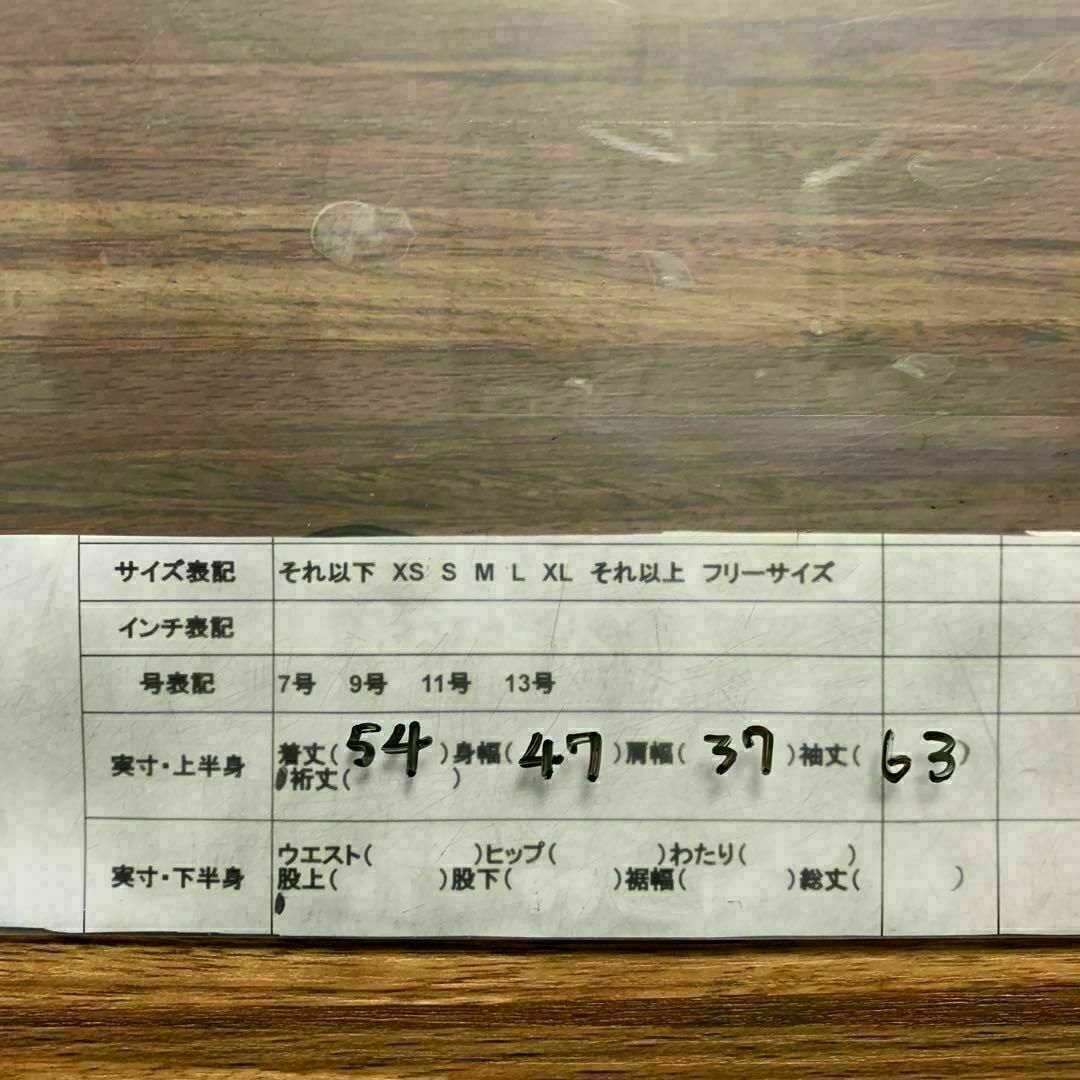 サイズ表記 それ以下 XS S M L XL それ以上 フリーサイズ
インチ表記
号表記 7号 9号 11号 13号
実寸・上半身 着丈( 54 )身幅( 47 )肩幅( 37 )袖丈( 63 )
裄丈( )
実寸・下半身 ウエスト( )ヒップ( )わたり( )
股上( )股下( )裾幅( )総丈( )